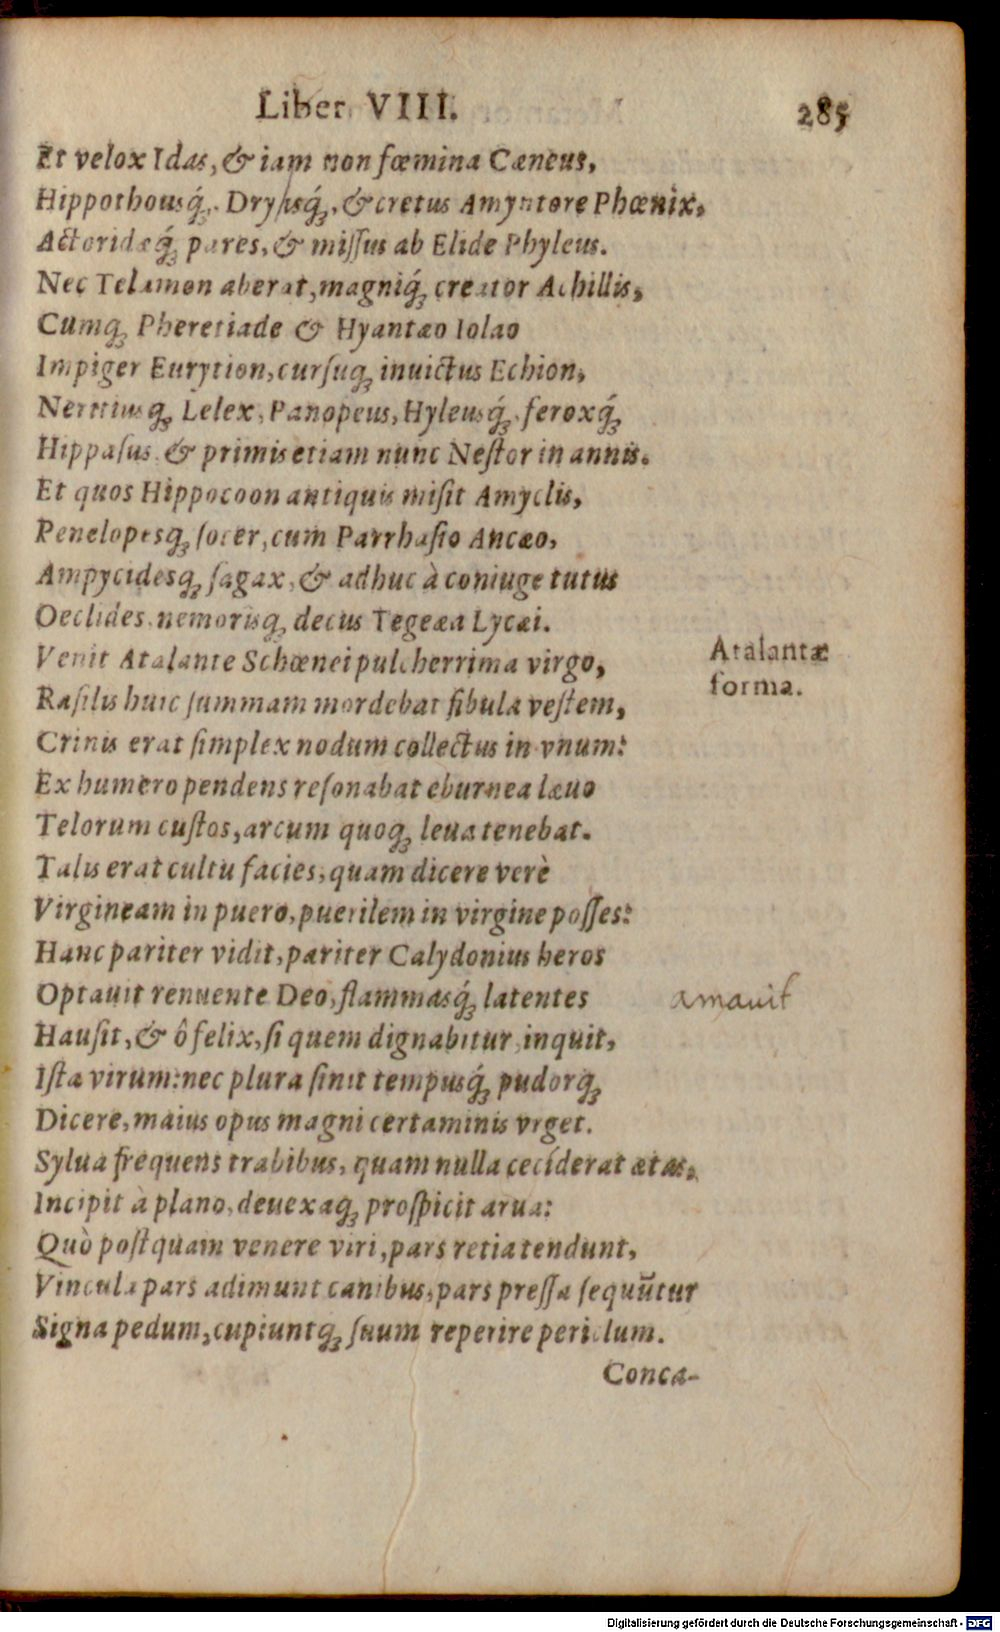 Liber VIII. 285
Et velox Idas, & iam non fœmina Cæneus,
Hippothousq́;. Dryasq́;, & cretus Amyntore Phœnix,
Actoridæq́; pares, & miſſus ab Elide Phyleus.
Nec Telamon aberat, magniq́; creator Achillis,
Cumq; Pheretiade & Hyantæo Iolao
Impiger Eurytion, curſuq; inuictus Echion,
Neritiusq; Lelex, Panopeus, Hyleusq́;, feroxq́;
Hippaſus & primis etiam nunc Neſtor in annis.
Et quos Hippocoon antiquis miſit Amyclis,
Penelopesq; ſocer, cum Parrhaſio Ancæo,
Ampycidesq; ſagax, & adhuc à coniuge tutus
Oeclides, nemorisq; decus Tegeæa Lycæi.
Venit Atalante Schœnei pulcherrima virgo,
Atalantæ
forma.
Raſilis huic ſummam mordebat fibula veſtem,
Crinis erat ſimplex nodum collectus in vnum:
Ex humero pendens reſonabat eburnea læuo
Telorum cuſtos, arcum quoq; leua tenebat.
Talis erat cultu facies, quam dicere verè
Virgineam in puero, puerilem in virgine poſſes:
Hanc pariter vidit, pariter Calydonius heros
Optauit renuente Deo, flammasq́; latentes
amauit
Hauſit, & ô felix, ſi quem dignabitur, inquit,
Iſta virum: nec plura ſinit tempusq́; pudorq́;
Dicere, maius opus magni certaminis vrget.
Sylua frequens trabibus, quam nulla cecíderat ætas,
Incipit à plano, deuexaq; proſpicit arua:
Quò poſtquam venere viri, pars retia tendunt,
Vincula pars adimunt canibus, pars preſſa ſequũtur
Signa pedum, cupiuntq; ſuum reperire periclum.
Conca-
Digitalisierung gefördert durch die Deutsche Forschungsgemeinschaft - DFG